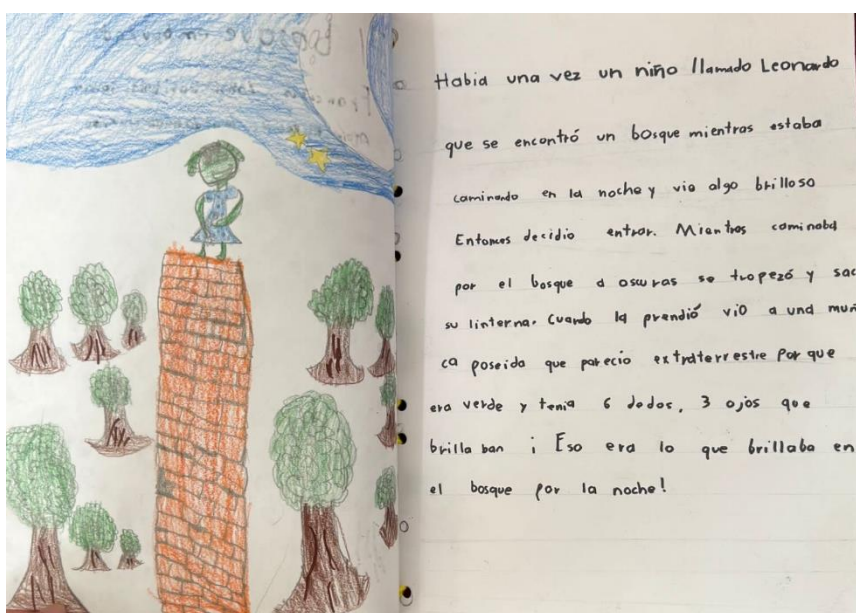 Habia una vez un niño llamado Leonardo
que se encontró un bosque mientras estaba
caminando en la noche y vio algo brilloso
Entonces decidio entrar. Mientras caminaba
por el bosque a oscuras se tropezó y sac
su linterna. Cuando la prendió vio a una muñ
ca poseida que parecio extraterrestre Por que
era verde y tenia 6 dedos, 3 ojos que
brilla ban ¡ Eso era lo que brillaba en
el bosque por la noche!